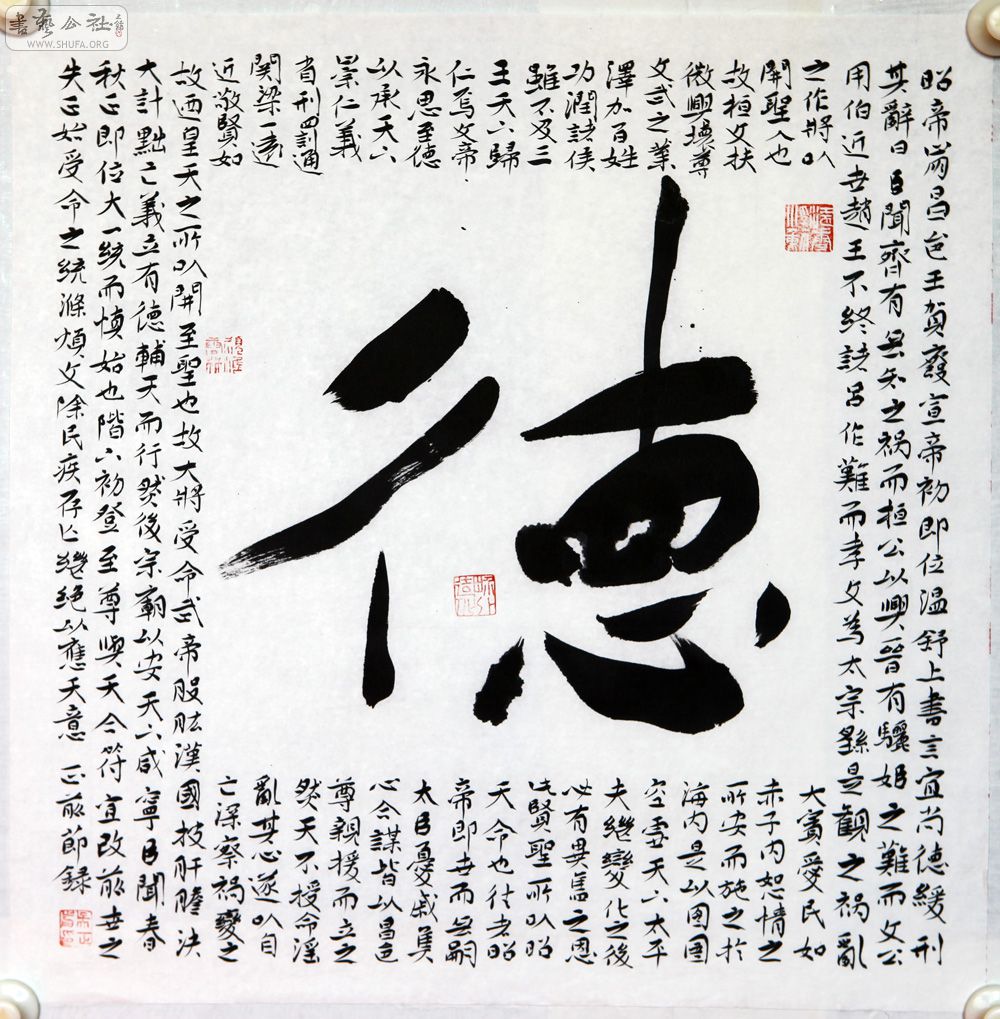 書藝公社
WWW.SHUFA.ORG
德
昭帝崩昌邑王賀廢宣帝初即位温舒上書言宜尚德緩刑
其辭曰臣聞齊有無知之禍而桓公以興晉有驪姬之難而文公
用伯近世趙王不終諸吕作難而孝文為太宗繇是觀之禍亂
之作將以
開聖人也
故桓文扶
微興壞尊
文武之業
澤加百姓
功潤諸侯
雖不及三
王天下歸
仁焉文帝
永思至德
以承天下
崇仁義
省刑罰通
關梁一遠
近敬賢如
大賓愛民如
赤子内恕情之
所安而施之於
海内是以囹圄
空虚天下太平
夫繼變化之後
必有異舊之恩
此賢聖所以昭
天命也往者昭
帝即世而無嗣
大臣憂戚焦
心合謀皆以昌邑
尊親援而立之
然天不授命淫
亂其心遂以自
亡深察禍變之
故迺皇天之所以開至聖也故大將受命武帝股肱漢國披肝膽决
大計黜亡義立有德輔天而行然後宗廟以安天下咸寧臣聞春
秋正即位大一統而慎始也陛下初登至尊與天合符宜改前世之
失正始受命之統滌煩文除民疾存亡繼絶以應天意 正前節録